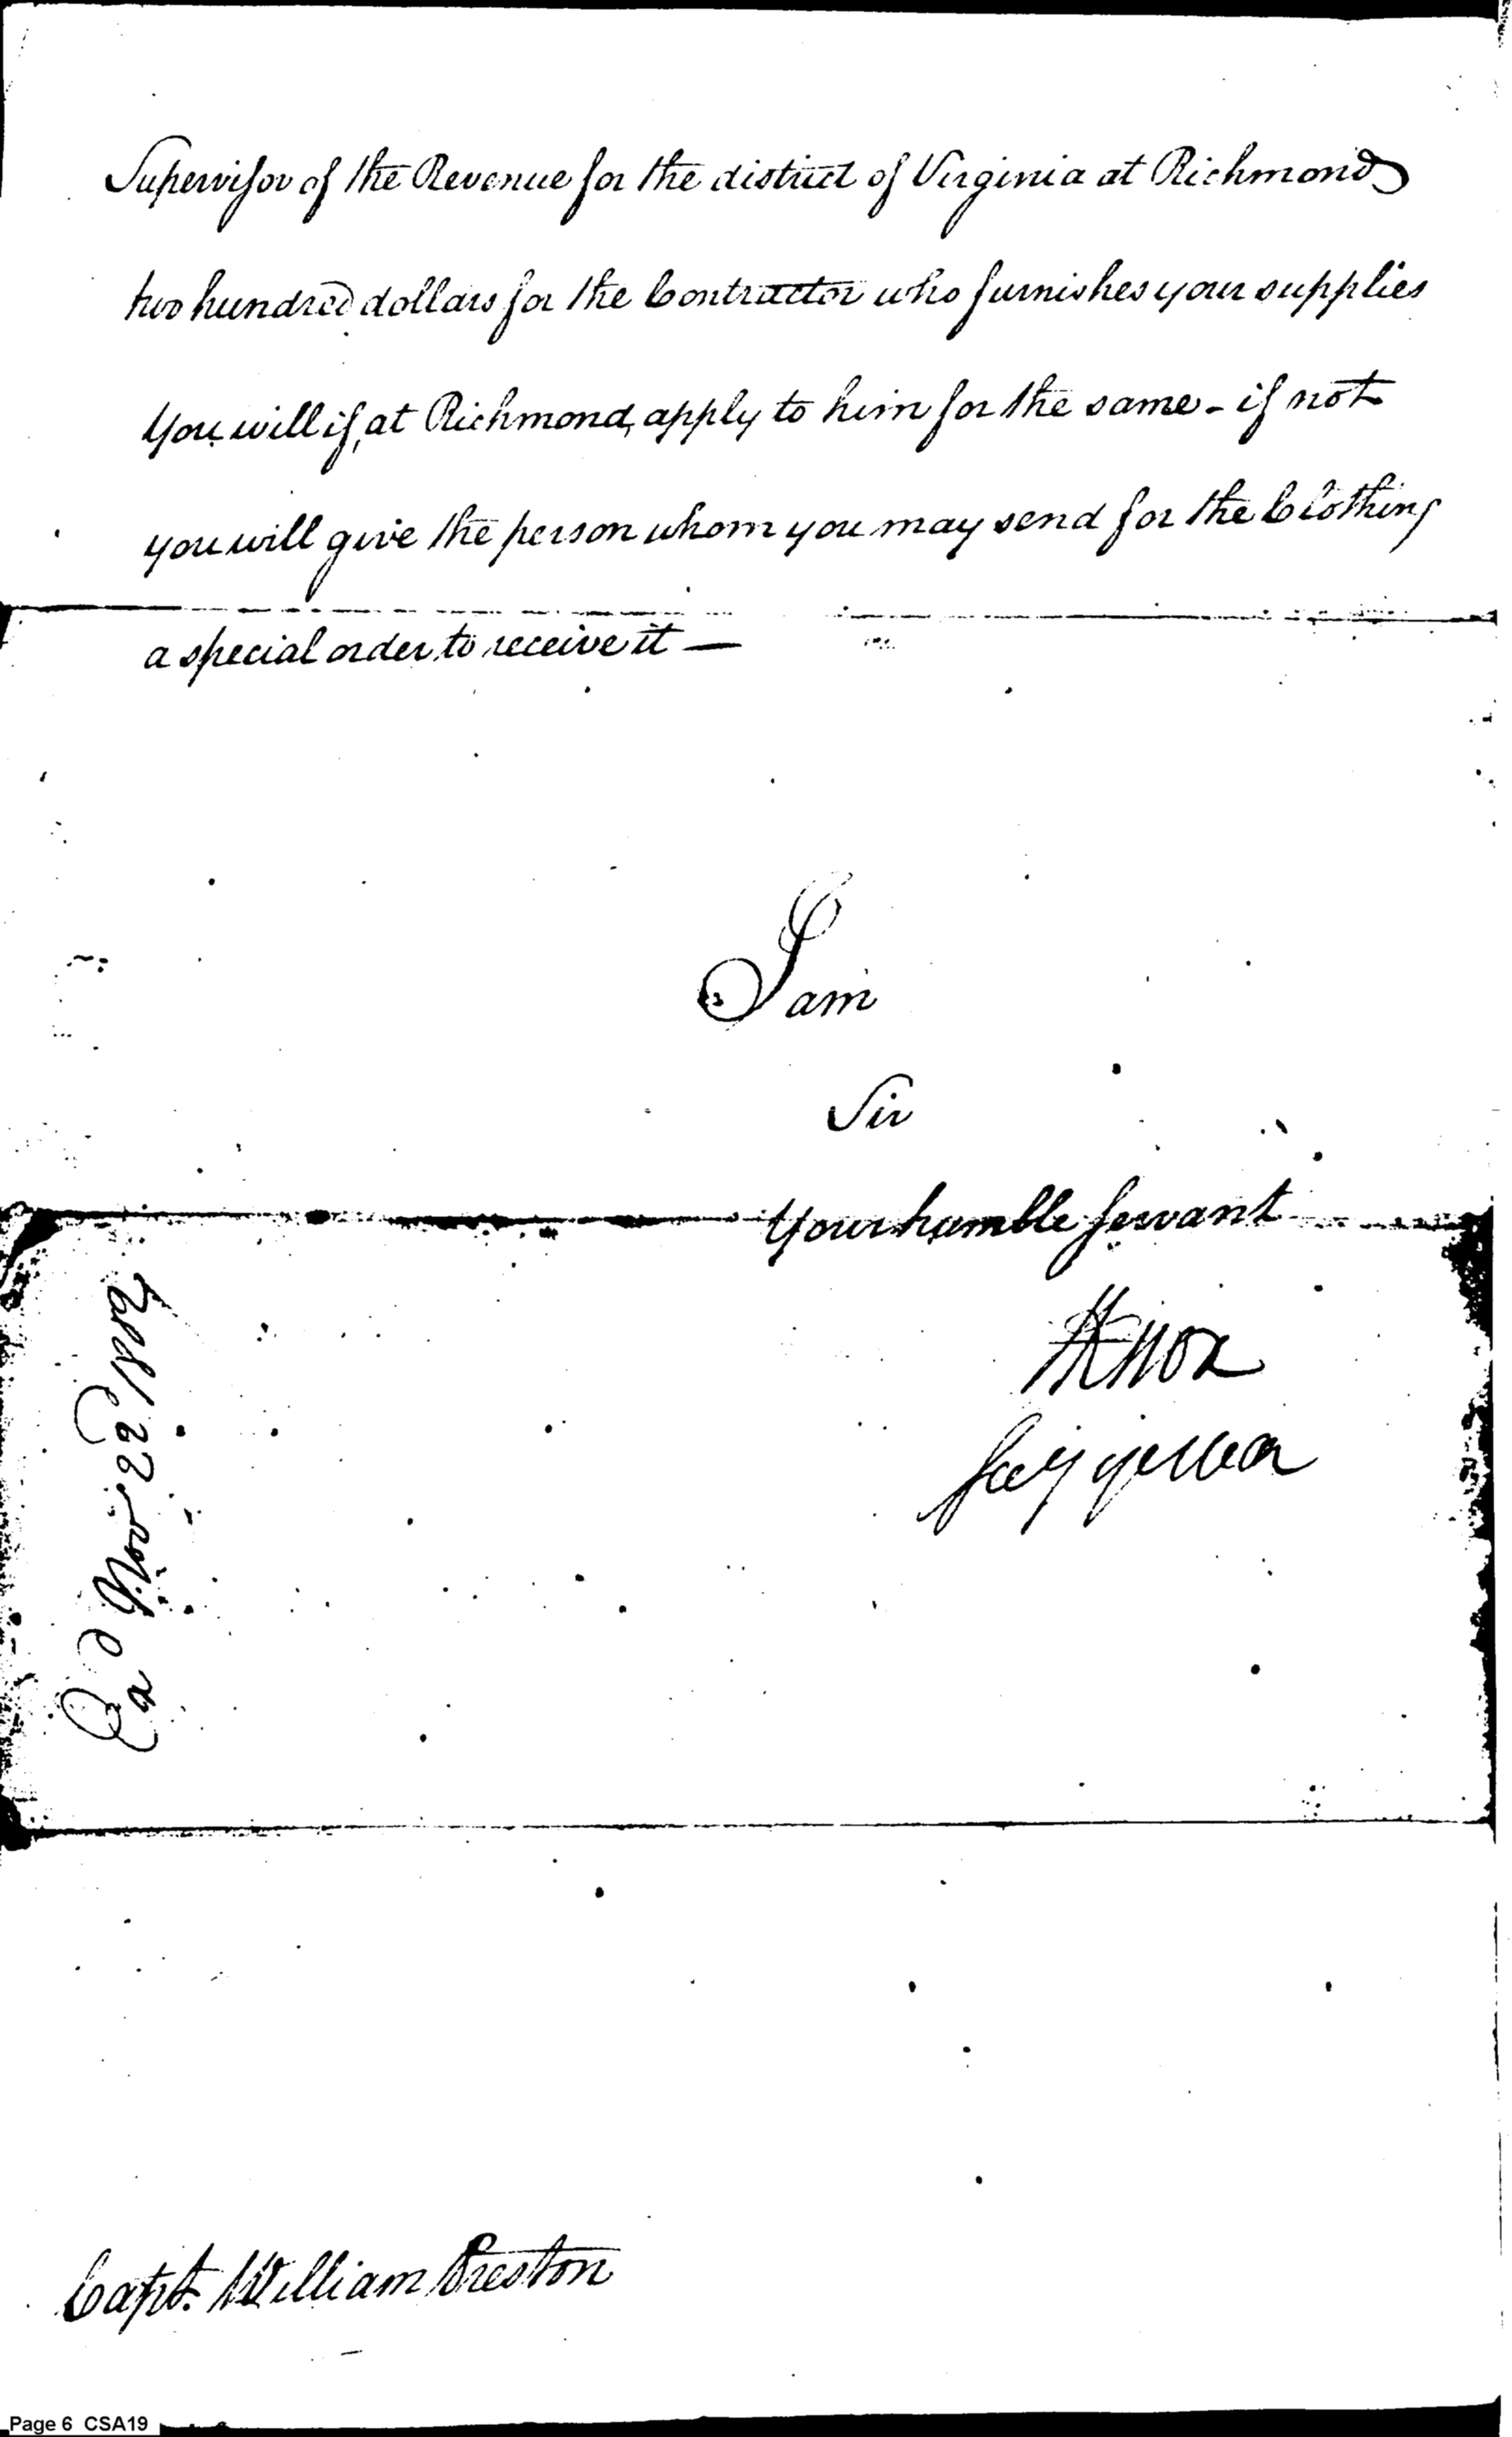 Supervisor of the Revenue for the district of Virginia at Richmond
two hundred dollars for the Contractor who furnishes your supplies
You will if, at Richmond, apply to him for the same - if not
you will give the person whom you may send for the Clothing
a special order to receive it —
I am
Sir
Your humble Servant
HKnox
Secy of war
Nov 22
Capt. William Preston
Page 6 CSA19